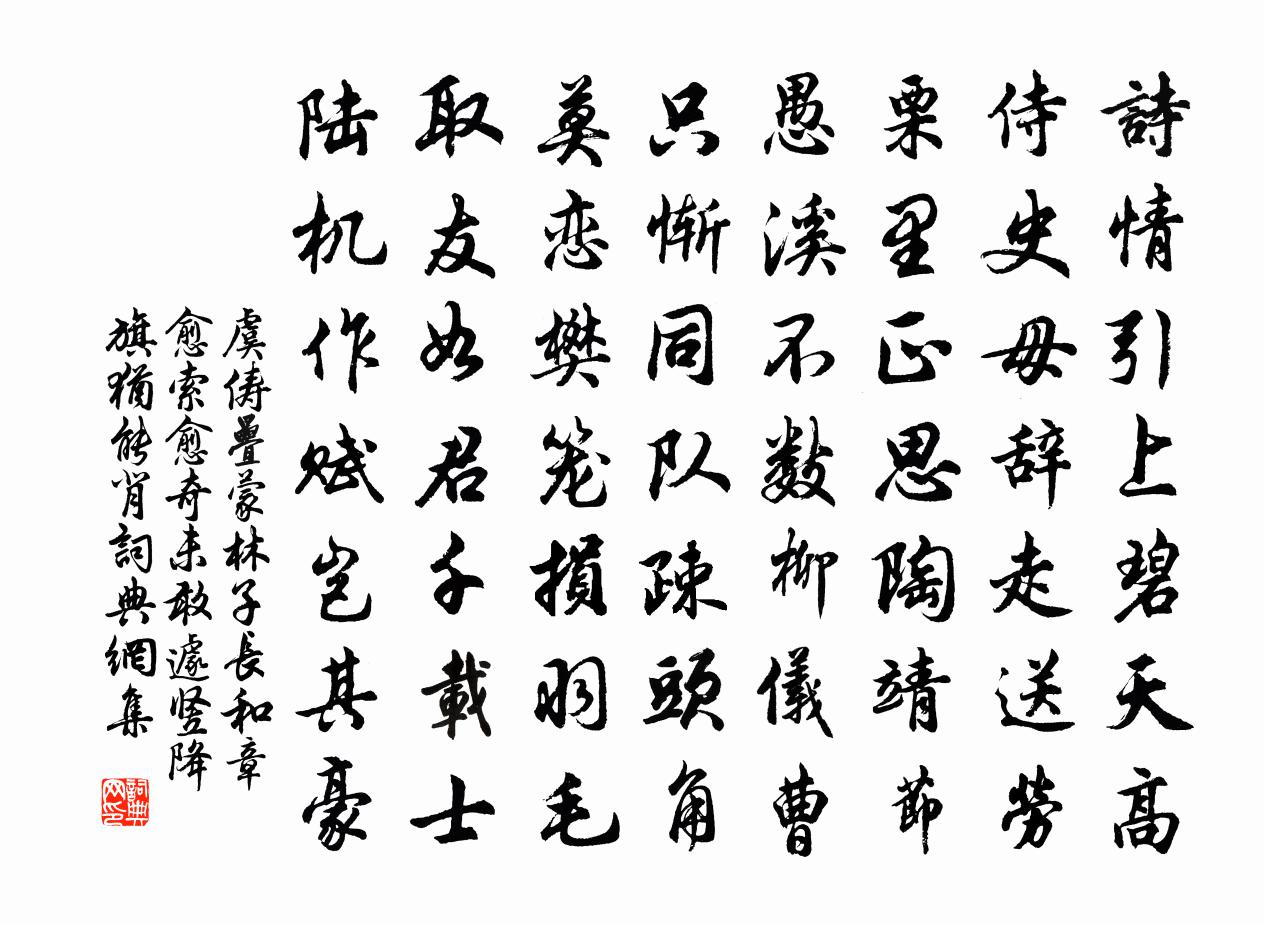 詩情引上碧天高
侍史毋辞走送勞
栗里正思陶靖節
愚溪不数柳儀曹
只惭同队疎頭角
莫恋樊笼損羽毛
取友如君千載士
陆机作赋岂其豪
虞儔疊蒙林子長和章
愈索愈奇未敢遽竖降
旗猶能肖詞典網集
詞典网印